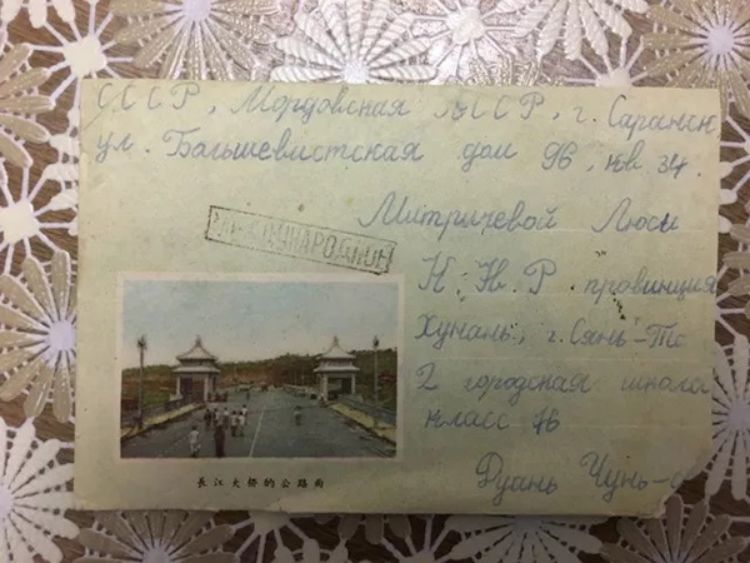 СССР, Мордовская АССР, г. Саранск
ул. Большевистская дом 96, кв 34.
Митричевой Люси
МЕЖДУНАРОДНОЕ
К. Н. Р. провинция
Хунань, г. Сянь-Та
2 городская школа
класс 76
Дуань Чунь-
長江大桥的公路面